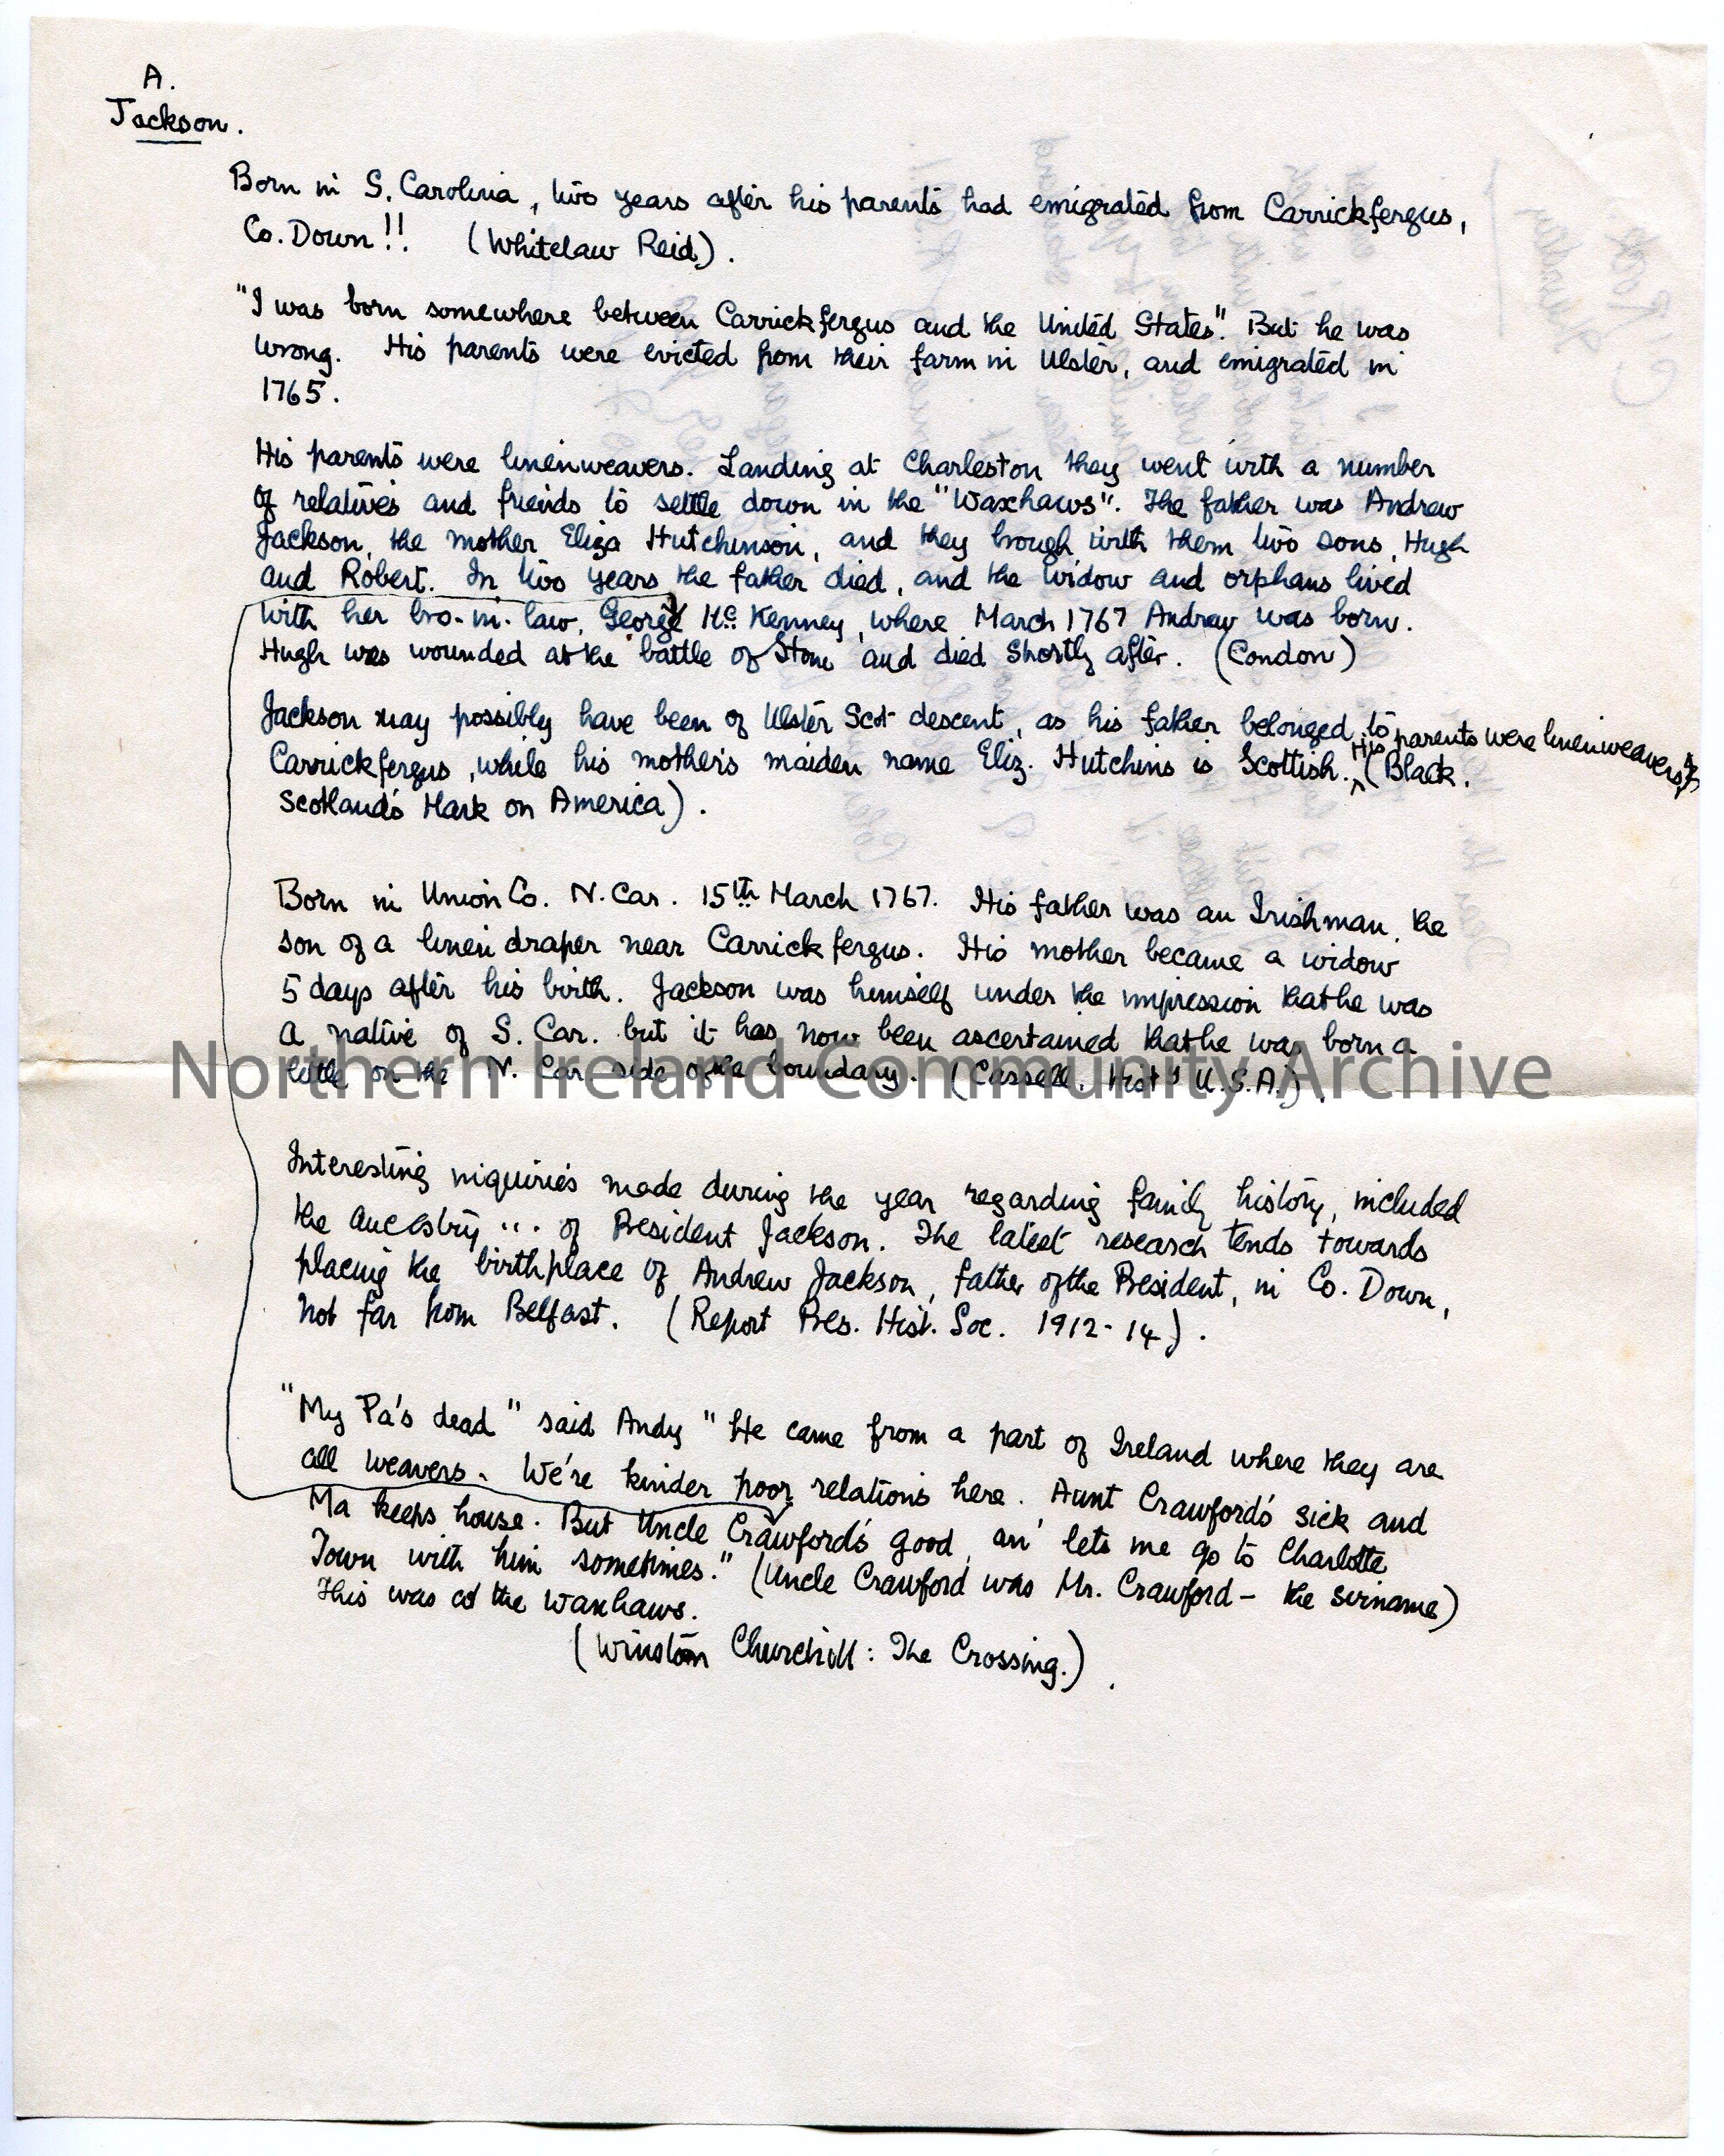 A.
Jackson.
Born in S. Carolina, two years after his parents had emigrated from Carrickfergus,
Co. Down!! (Whitelaw Reid).
"I was born somewhere between Carrickfergus and the United States". But he was
wrong. His parents were evicted from their farm in Ulster, and emigrated in
1765.
His parents were linenweavers. Landing at Charleston they went with a number
of relatives and friends to settle down in the "Waxhaws". The father was Andrew
Jackson, the mother Eliza Hutchinson, and they brough with them two sons, Hugh
and Robert. In two years the father died, and the widow and orphans lived
with her bro-in-law, George McKenney, where March 1767 Andrew was born.
Hugh was wounded at the battle of Stone and died shortly after. (Condon)
Jackson may possibly have been of Ulster Scot descent, as his father belonged to
Carrickfergus, while his mother's maiden name Eliz. Hutchins is Scottish. His parents were linenweavers (Black.
Scotland's Mark on America).
Born in Union Co. N. Car. 15th March 1767. His father was an Irishman, the
son of a linen draper near Carrickfergus. His mother became a widow
5 days after his birth. Jackson was himself under the impression that he was
a native of S. Car. but it has now been ascertained that he was born a
little on the N. Car. side of the boundary. (Cassell. Hist U.S.A.).
Northern Ireland Community Archive
Interesting inquiries made during the year regarding family history, included
the ancestry ... of President Jackson. The latest research tends towards
placing the birthplace of Andrew Jackson, father of the President, in Co. Down,
not far from Belfast. (Report Pres. Hist. Soc. 1912-14).
"My Pa's dead" said Andy "He came from a part of Ireland where they are
all weavers. We're kinder poor relations here. Aunt Crawford's sick and
Ma keeps house. But Uncle Crawford's good, an' lets me go to Charlotte
Town with him sometimes." (Uncle Crawford was Mr. Crawford - the sirname)
This was at the Waxhaws.
(Winston Churchill: The Crossing.).